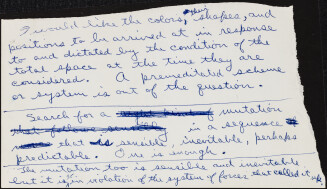 I would like the colors, their shapes, and
positions to be arrived at in response
to and dictated by the condition of the
total space at the time they are
considered. A premeditated scheme
or system is out of the question.
Search for a mutation
in a sequence
that is sensible, inevitable, perhaps
predictable. One is sought
The mutation too is sensible and inevitable
but it is in violation of the system of forces that called it up